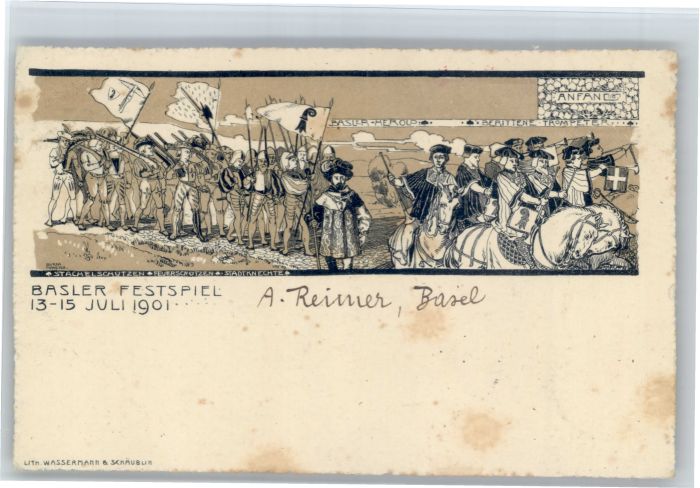 ANFANG
BASLER-HEROLD BERITTENE TROMPETER
STACHELSCHÜTZEN FEUERSCHÜTZEN STADTKNECHTE
BASLER FESTSPIEL
13-15 JULI 1901
A. Reimer, Basel
LITH. WASSERMANN & SCHÄUBLIN